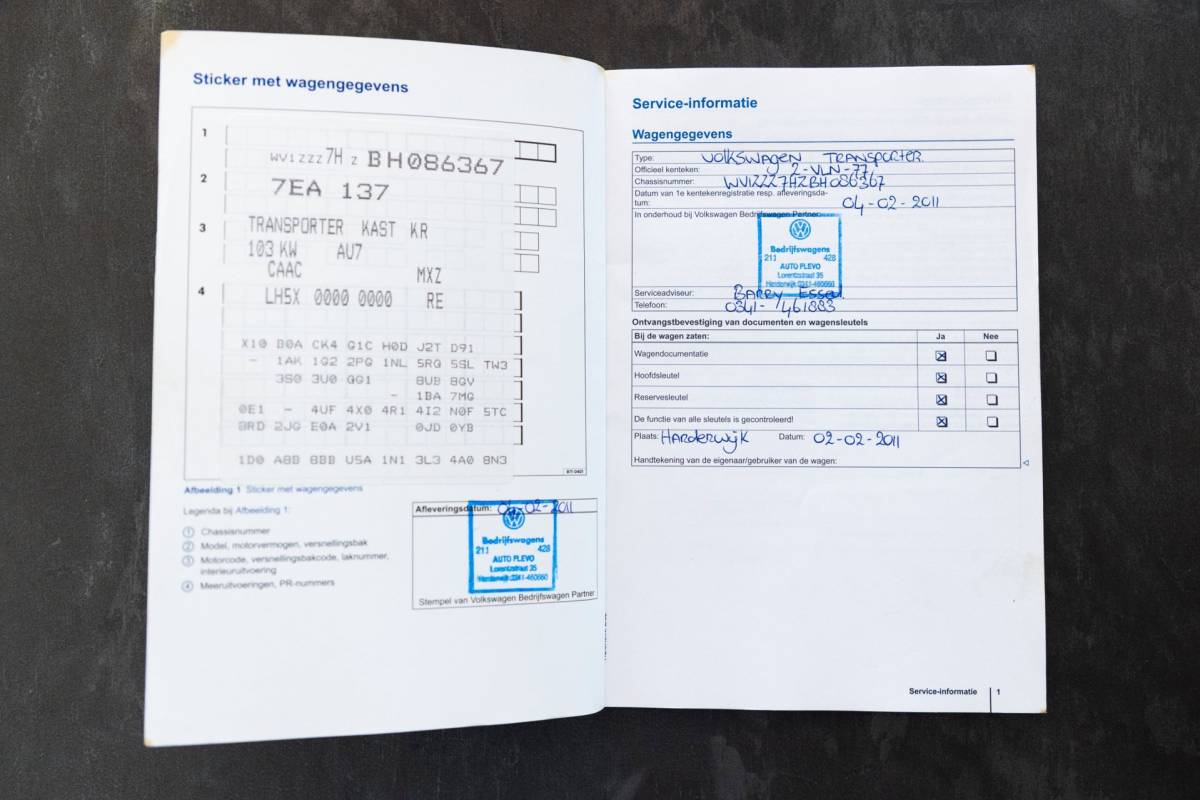 Sticker met wagengegevens
1
WV1ZZZ 7H Z BH086367
2
7EA 137
3
TRANSPORTER KAST KR
103 KW AU7
CAAC MXZ
4
LH5X 0000 0000 RE
X10 B0A CK4 G1C H0D J2T D91
- 1AK 1G2 2PG 1NL 5RG 5SL TW3
3S0 3U0 GG1 8UB 8GV
- 1BA 7MG
0E1 - 4UF 4X0 4R1 4I2 N0F 5TC
8RD 2JG E0A 2V1 0JD 0YB
1D0 A8B 8BB U5A 1N1 3L3 4A0 8N3
Afbeelding 1 Sticker met wagengegevens
Legenda bij Afbeelding 1:
1 Chassisnummer
2 Model, motorvermogen, versnellingsbak
3 Motorcode, versnellingsbakcode, laknummer,
interieuruitvoering
4 Meeruitvoeringen, PR-nummers
Afleveringsdatum: 04-02-2011
Bedrijfswagens
211 428
AUTO FLEVO
Lorentzstraat 35
Harderwijk 0341-460660
Stempel van Volkswagen Bedrijfswagen Partner
Service-informatie
Wagengegevens
Type: VOLKSWAGEN TRANSPORTER
Officieel kenteken: 2-VLN-77
Chassisnummer: WV1ZZZ7HZBH086367
Datum van 1e kentekenregistratie resp. afleveringsda-
tum: 04-02-2011
In onderhoud bij Volkswagen Bedrijfswagen Partner:
Bedrijfswagens
211 428
AUTO FLEVO
Lorentzstraat 35
Harderwijk 0341-460660
Serviceadviseur: BARRY
Telefoon: 0341-461883
Ontvangstbevestiging van documenten en wagensleutels
Bij de wagen zaten: Ja Nee
Wagendocumentatie
Hoofdsleutel
Reservesleutel
De functie van alle sleutels is gecontroleerd!
Plaats: HARDERWIJK Datum: 02-02-2011
Handtekening van de eigenaar/gebruiker van de wagen:
Service-informatie 1